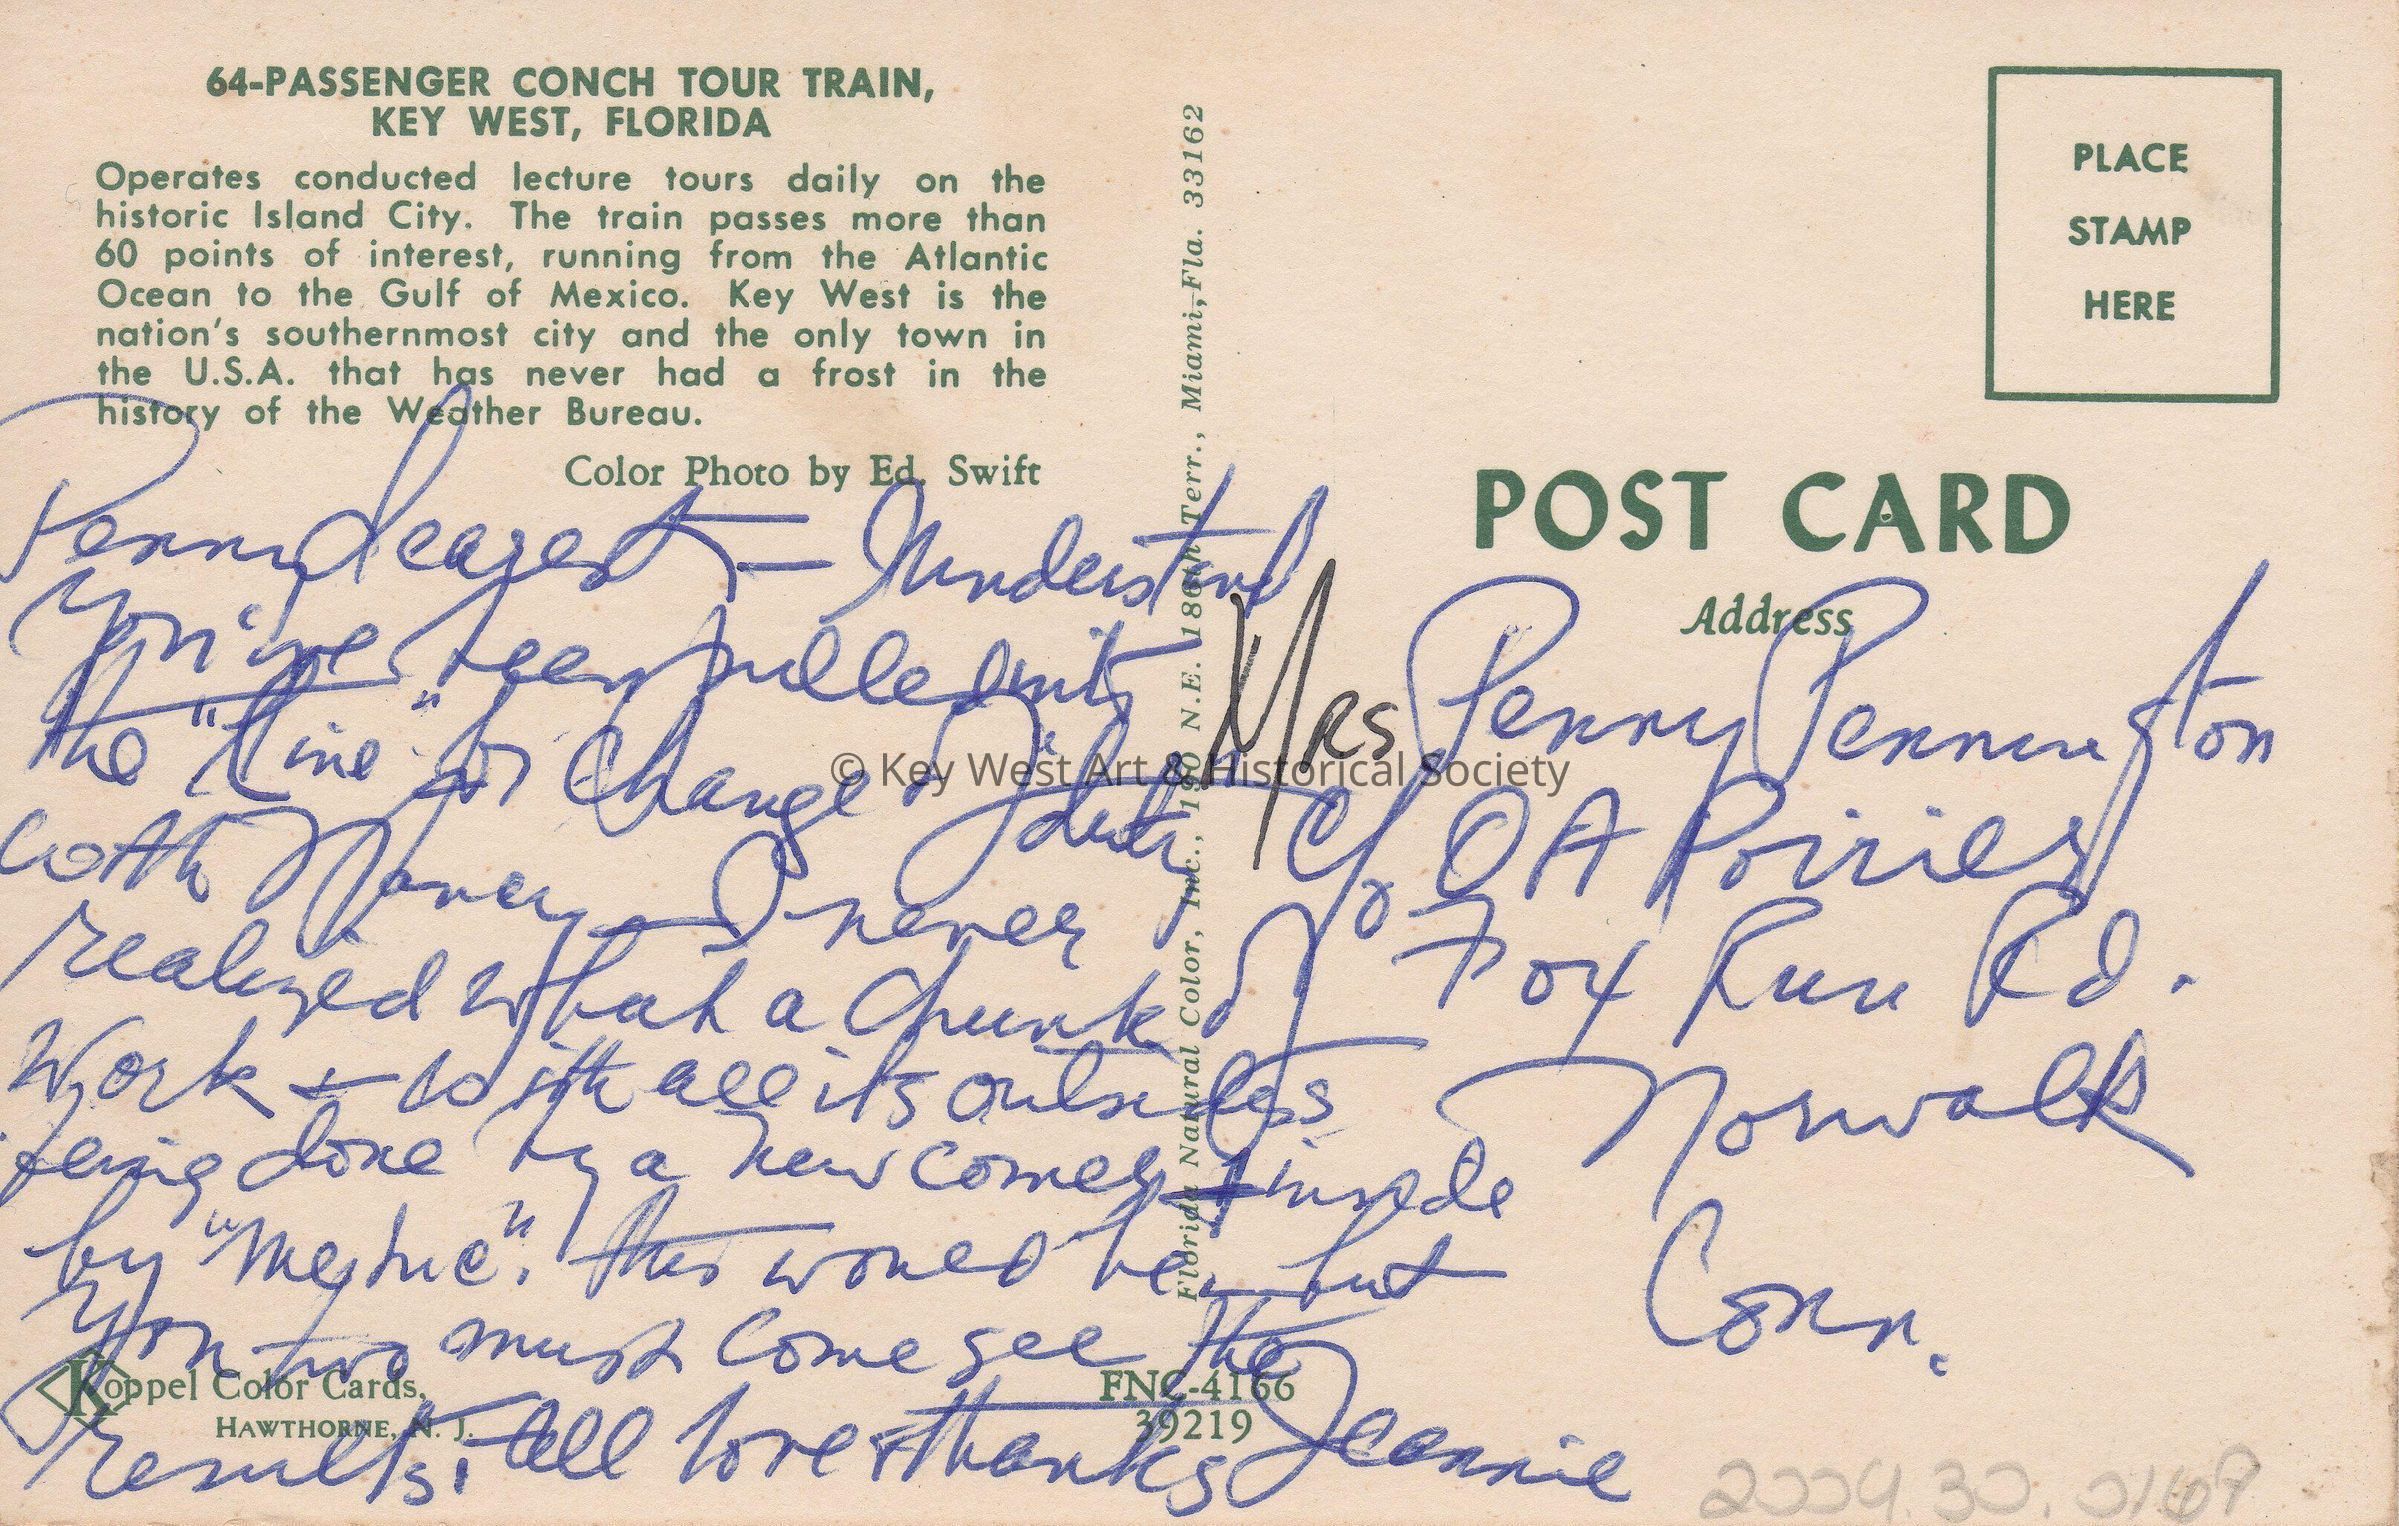 64-PASSENGER CONCH TOUR TRAIN,
KEY WEST, FLORIDA
Operates conducted lecture tours daily on the
historic Island City. The train passes more than
60 points of interest, running from the Atlantic
Ocean to the Gulf of Mexico. Key West is the
nation's southernmost city and the only town in
the U.S.A. that has never had a frost in the
history of the Weather Bureau.
Color Photo by Ed. Swift
Penny dearest — Understand
You've been pulled into
the "line" for change
with Nancy — I never
realized what a chunk of
work & with all its
being done by a newcomer & inside
by this would be, but
you two must come see the
results. All love & thanks Jeannie
Koppel Color Cards,
HAWTHORNE, N. J.
FNC-4166
39219
Florida Natural Color, Inc., 190 N.E. 186th Terr., Miami, Fla. 33162
PLACE
STAMP
HERE
POST CARD
Address
Mrs Penny Pennington
c/o O A Poirier
Fox Run Rd.
Norwalk
Conn.
© Key West Art & Historical Society
2004.30.0167